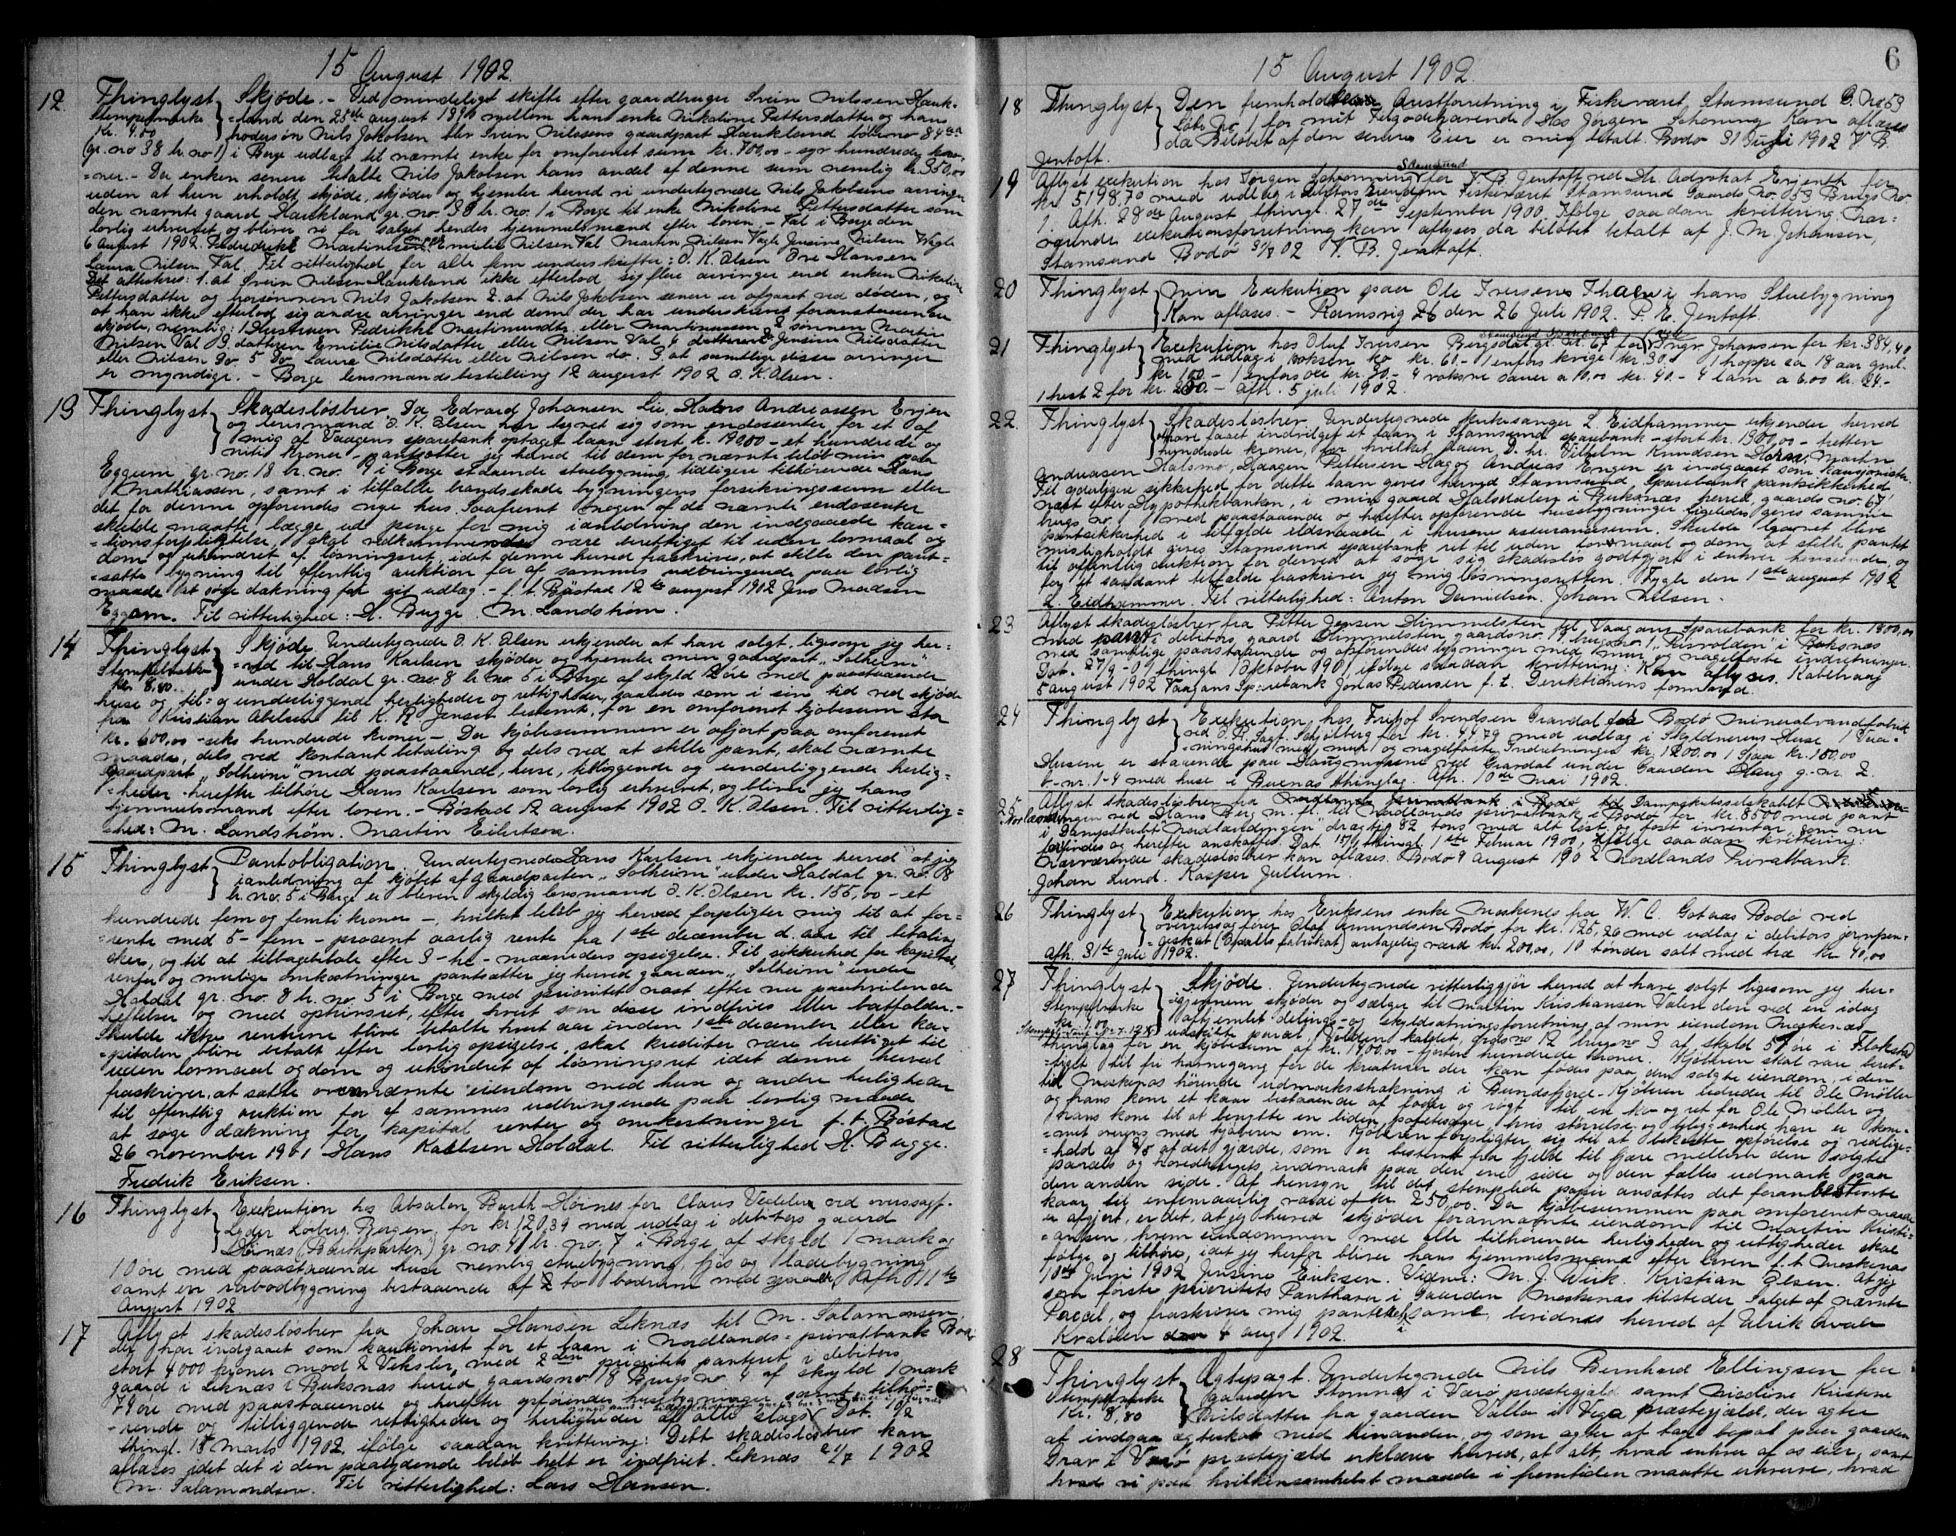 15 August 1902.
12 Thinglyst Skjøde. - Ved mindeligt skifte efter gaardbruger Svein Nilsen Hauk-
Stempelmærke =land den 25de august 1890 mellem hans enke Nikoline Pettersdatter og hans
Kr. 4.80 hodegsøn Nils Jakobsen blev Svein Nilsens gaardpart Haukland løbeno 84
(gr. no 38 br. no 1) i Borge udlagt til nævnte enke for omforenet sum kr. 700,00 - syv hundrede kro-
ner. - Da enken senere betalte Nils Jakobsen hans andel af denne sum nemlig kr 350,00
uden at hun erholdt skjøde, skjøder og hjemler herved vi undertegnede Nils Jakobsens arvinger
den nævnte gaard Haukland gr. no. 38 br. no. 1 i Borge til enke Nikoline Pettersdatter som
lovlig erhvervet og bliver vi for salget hendes hjemmelsmænd efter loven. - Val i Borge den
6 august 1902. Fredrikke Martinesen Emilie Nilsen Val Martin Nilsen Vagle Jensine Nilsen Wagle
Laura Nilsen Val. Til vitterlighed for alle fem underskrifter: O. K. Olsen Ove Hansen
Det attesteres: 1. at Svein Nilsen Haukland ikke efterlod sig flere arvinger end enken Nikoline
Pettersdatter og horsønnen Nils Jakobsen 2. at Nils Jakobsen senere er afgaaet ved døden, og
at han ikke efterlod sig andre arvinger end dem der har underskrevet foranstaaende
skjøde, nemlig: 1 Hustruen Fredrikke Martinusdtr. eller Martinussen 2 sønnen Martin
Nilsen Val 3 datteren Emilie Nilsdatter eller Nilsen Val 4 datteren Jensine Nilsdatter
eller Nilsen Do. 5 Do. Laura Nilsdatter eller Nilsen do. 3. at samtlige disse arvinger
er myndige. - Borge lensmandsbestilling 12 august 1902 O. K. Olsen.
13 Thinglyst Skadesløsbrev. Da Edvard Johansen Lie, Andreassen Evjen
og lensmand O. K. Olsen har tegnet sig som endossenter for et af
mig af Vaagens sparebank optaget laan stort k. 190.00 - et hundrede og
nitti kroner - pantsætter jeg herved til dem for nævnte beløb min paa
Eggum gr. no. 18 br. no. 9 i Borge staaende stuebygning, tidligere tilhørende
Mathiassen, samt i tilfælde brandsskade bygningens forsikringssum eller
det for denne opførendes nye hus. Saafremt nogen af de nævnte endossenter
skulde maatte lægge ud penge for mig i anledning den indgaaede kau-
=tionsforpligtelse, skal vedkommende være berettiget til uden lovmaal og
dom og uhindret af løsningsret, idet denne herved fraskrives, at stille den pant-
=satte bygning til offentlig auktion for af sammes udbringende paa lovlig
maade at søge dækning for sit udlag. - f. t. Bøstad 12te august 1902 Jens Madsen
Eggum. Til vitterlighed: H. Bugge. M. Landstrøm.
14 Thinglyst Skjøde. Undertegnede O. K. Olsen erkjender at have solgt, ligesom jeg her-
Stempelmærke =ved til Hans Karlsen skjøder og hjemler min gaardpart "Solheim"
kr. 8,80. under Holdal gr. no. 8 br. no. 5 i Borge af skyld 2 øre med paastaaende
huse og til- og underliggende herligheder og rettigheder, saaledes som i sin tid ved skjøde
fra Kristian Abelsen til K. R. Jensen bestemt, for en omforenet kjøbesum stor
kr. 600,00 - seks hundrede kroner - Da kjøbesummen er afgjort paa omforenet
maade, dels ved kontant betaling og dels ved at stille pant, skal nævnte
gaardpart "Solheim" med paastaaende, huse, tilliggende og underliggende herlig-
=heder herefter tilhøre Hans Karlsen som lovlig erhvervet, og bliver jeg hans
hjemmelsmand efter loven. - Bøstad 12 august 1902 O. K. Olsen. Til vitterlig-
=hed: M. Landstrøm. Martin Eilertsen.
15 Thinglyst Pantobligation. Undertegnede Hans Karlsen erkjender herved at jeg
i anledning af kjøbet af gaardparten "Solheim" under Holdal gr. no. 8
br. no. 5 i Borge er bleven skyldig lensmand O. K. Olsen kr. 155,00 - et
hundrede fem og femti kroner -, hvilket beløb jeg herved forpligter mig til at for=
=rente med 5 - fem - procent aarlig rente fra 1ste december d. aar til betaling
sker, og til at tilbagebetale efter 3 - tre - maaneders opsigelse. Til sikkerhed for kapital
renter og mulige omkostninger pantsætter jeg herved gaarden "Solheim" under
Holdal gr. no. 8 br. no. 5 i Borge med prioritet næst efter nu paahvilende
heftelser og med optrinsret, efter hvert som disse indfries eller bortfalder. -
Skulde ikke renterne blive betalte hvert aar inden 1ste december eller ka-
=pitalen blive betalt efter lovlig opsigelse, skal kreditor være berettiget til
uden lovmaal og dom og uhindret af løsningsret idet denne herved
fraskrives, at sætte ovennævnte eiendom med hus og andre herligheder
til offentlig auktion for af sammes udbringende paa lovlig maade
at søge dækning for kapital renter og omkostninger f. t. Bøstad
26 november 1901 Hans Karlsen Holdal. Til vitterlighed H. Bugge.
Fredrik Eriksen.
16 Thinglyst Exekution hos Absalon Barth Hørnes for Claus Vedeler ved overssagf.
Leder Loberg, Bergen, for kr 120,39 med udlag i debitors gaard
Hørnæs (Barthparten) gr. no. 41 br. no. 7 i Borge, af skyld 1 mark og
10 øre med paastaaende huse nemlig stuebygning, fjøs og ladebygning
samt en rorbodbygning bestaaende af 2 to bodrum med Afh 11te
August 1902
17 Aflyst skadesløsbrev fra Johan Hansen Leknæs til M. Salamonsen
der har indgaaet som kautionist for et laan i Nordlands privatbank Bodø
stort 4000 kroner mod 2 Veksler, med 2den prioritets panteret i debitors
gaard i Leknæs i Buksnæs herred gaardsno 18 Brugs no. 4 af skyld 1 mark
74 øre med paastaaende og herefter opførendes husbygninger samt tilhø=
-rende og tilliggende rettigheder og herligheder af alle slags. Dat.
thingl. 15 marts 1902, ifølge saadan kvittering: Dette skadesløsbrev kan
aflæses idet det i den paalydende beløb helt er indfriet. Leknæs 21/7 1902
M. Salamondsen. Til vitterlighed: Lars Hansen.
15 August 1902. 6
18 Thinglyst Den fremholdte Arrestforretning i Fiskeværet Stamsund G. No 53
Løbe No 1 for mit Tilgodehavende hos Jørgen Schøning kan aflæses
da Beløbet af den senere Eier er mig betalt. Bodø 31 Juli 1902 V. B.
Jentoft.
19 Aflyst exekution hos Jørgen Schønning Stamsund for V. B. Jentoft ved Hr. Advokat Erjenth for
kr 5198,70 med udlag i debitors Eiendom Fiskeværet Stamsund Gaards No. 53 Brugs No.
1. Afh. 28de August thingl. 27de September 1900. Ifølge saadan kvittering: Nær=
værende exekutionsforretning kan aflyses da beløbet betalt af J. M. Johansen,
Stamsund Bodø 9/8 02 V. B. Jentoft.
20 Thinglyst Min Exekution paa Ole Iversens Thaen i hans Stuebygning
Kan aflæses. - Ramsvig 26 den 26 Juli 1902. P. E. Jentoft.
21 Thinglyst Exekution hos Oluf Iversen Bergsdal gr. nr. 67 for Ingv. Johansen for kr. 384,40
med udlag i 1 voksen ko kr. 60.- 1 enfors kvige kr. 30.- 1 hoppe ca 18 aar gml.
kr 150 - 1 enfors okse kr. 30 - 4 voksne sauer a 10,00 kr. 40.- 4 lam a 6.00 kr. 24.-
1 hest 2 for kr. 250.- afh. 5 juli 1902.
22 Thinglyst Skadesløsbrev Undertegnede kirkesanger L. Eidhammer erkjender herved
at have faaet indvilget et laan i Stamsund sparebank - stort kr. 1300,00 - tretten
hundrede kroner, for hvilket laan D. hr. Vilhelm Knudsen Martin
Andreasen Halsmo, Haagen Pettersen Hag og Andreas Engen er indgaaet som kausjonister
Til yderligere sikkerhed for dette laan gives herved Stamsund Sparebank pantsikkerhed
næst efter Hypothekbanken, i min gaard Halsdalen i Buksnæs herred gaards no. 67
brugs no. 1 med paastaaende og herefter opførende husebygninger ligeledes gives samme
pantsikkerhed i tilfælde ildsvaade i husenes assurancesum. Skulde laanet blive
misligholdt gives Stamsund sparebank ret til uden lovmaal og dom, at stille pantet
til offentlig auktion for derved at søge sig skadesløs godtgjort i enhver henseende, og
for et saadant tilfælde fraskriver jeg mig løsningsretten. Fygle den 1ste august 1902
L. Eidhammer. Til vitterlighed: Anton Danielsen. Johan Nilsen.
23 Aflyst skadesløsbrev fra Petter Jensen Himmelsten til Vaagan Sparebank for kr. 1800,00
med pant i debitors gaard Himmelsten gaardsno. 19 brugsno 1 i Buksnæs
med samtlige paastaaende og opførendes bygninger med mur og nagelfaste indretninger
Dat. 27/9-01 thingl 1 Oktober 1901, ifølge saadan kvittering: Kan aflyses. Kabelvaag
5 august 1902 Vaagans Sparebank Jonas Pedersen f. t. Direktionens formand.
24 Thinglyst Exekution hos Fritjof Svendsen Gravdal fra Bodø mineralvandsfabrik
ved O. R. Sagf. Schjølberg for kr. 44,79 med udlag i Skyldnerens Huse 1 Vaa-
=ningshus med mur og nagelfaste Indretninger kr. 1200,00 1 Sjaa kr. 100,00
Husene er staaende paa Haugmyrene ved Gravdal under Gaarden Haug g.-nr. 2
b.-nr. 1-4 med huse i Buksnæs thinglag. Afh. 10de Mai 1902.
25 Aflyst skadesløsbrev fra Dampskibsselskabet
Nordlændingen ved Hans Berg m. fl. til Nordlands privatbank i Bodø for kr. 8500 med pant
i Dampskibet "Nordlændingen" drægtig 82 tons med alt løst og fast inventar, som nu
forfindes og herefter anskaffes. Dat 15/1, thingl 1ste Februar 1900, ifølge saadan kvittering:
Nærværende skadesløsbrev kan aflæses. Bodø 9 august 1902 Nordlands Privatbank.
Johan Lund. Kasper Jullum.
26 Thinglyst Exekution hos Eriksens enke Moskenes fra W. C. Gotaas Bodø ved
overretssagfører Olaf Amundsen Bodø for kr. 125,26 med udlag i debitors jernpen-
=geskab (Opsalls fabrikat) antagelig værd kr. 200,00, 10 tønder salt med træ kr 40,00
Afh. 31te juli 1902.
27 Thinglyst Skjøde. Undertegnede vitterliggjør herved at have solgt ligesom jeg her-
Stempelmærke =igjennem skjøder og sælger til Martin Kristiansen Valen den ved en idag
afhjemlet delings- og skyldsætningsforretning af min eiendom Moskenæs
udskilte parcel, Volden kaldet, grdsno 12 brugsno 3 af skyld 57 øre i Flakstad
thinglag for en kjøbesum af kr. 1400.00 - fjorten hundrede kroner. Kjøberen skal være beret-
=tiget til fri havnegang for de kreaturer der kan fødes paa den solgte eiendom, i den
til Moskenæs hørende udmarkstrækning i Bundsfjord. Kjøberen udreder til Ole Møller
og hans kone et kaar bestaaende af foder og røgt til en ko og ret for Ole Møller og
hans kone til at benytte en liden potetesager, hvis størrelse og beliggenhed han er kom-
=met overens med kjøberen om. Kjøberen forpligter sig til at bekoste opførelse og vedlige-
=hold af 4/5 af det gjærde, som er bestemt fra fjeld til fjære mellem den solgte
parcels og Hovedbrugets indmark paa den ene side og den fælles udmark paa
den anden side. Af hensyn til det stemplede papir ansættes det foranbestemte
kaar til enfemaarlig værdi efter 250,00. Da kjøbesummen paa omforenet maade
er afgjort, er det, at jeg herved skjøder forannævnte eiendom til Martin Kristi=
=ansen, hvem eiendommen med alle tilhørende herligheder og rettigheder skal
følge og tilhøre, idet jeg herfor bliver hans hjemmelsmand efter loven f. t. Moskenæs
10de Juni 1902 Jensine Eriksen. Vidner: M. J. Weik. Kristian Olsen. At jeg
som første prioritets Panthaver i Gaarden Moskenæs tilsteder Salget af nævnte
Parcel, og fraskriver mig panteret i samme, bevidnes herved af Ulrik Qvale
Kraløen den 4 aug 1902.
28 Thinglyst Ægtepagt. Undertegnede Nils Bernhard Ellingsen fra
Stempelmærke gaarden Stomnæs i Værø præstegjeld samt Nicoline Kristine
Kr. 8,80 Nilsdatter fra gaarden Valla i Vega præstegjeld, der agter
at indgaa ægteskab med hinanden, og som agter at tage bopæl paa gaarden
Grav i Værø præstegjeld erklærer herved, at alt, hvad enhver af os eier, samt
hvad vi paa hvilkensomhelst maade i fremtiden maatte erhverve, hvad